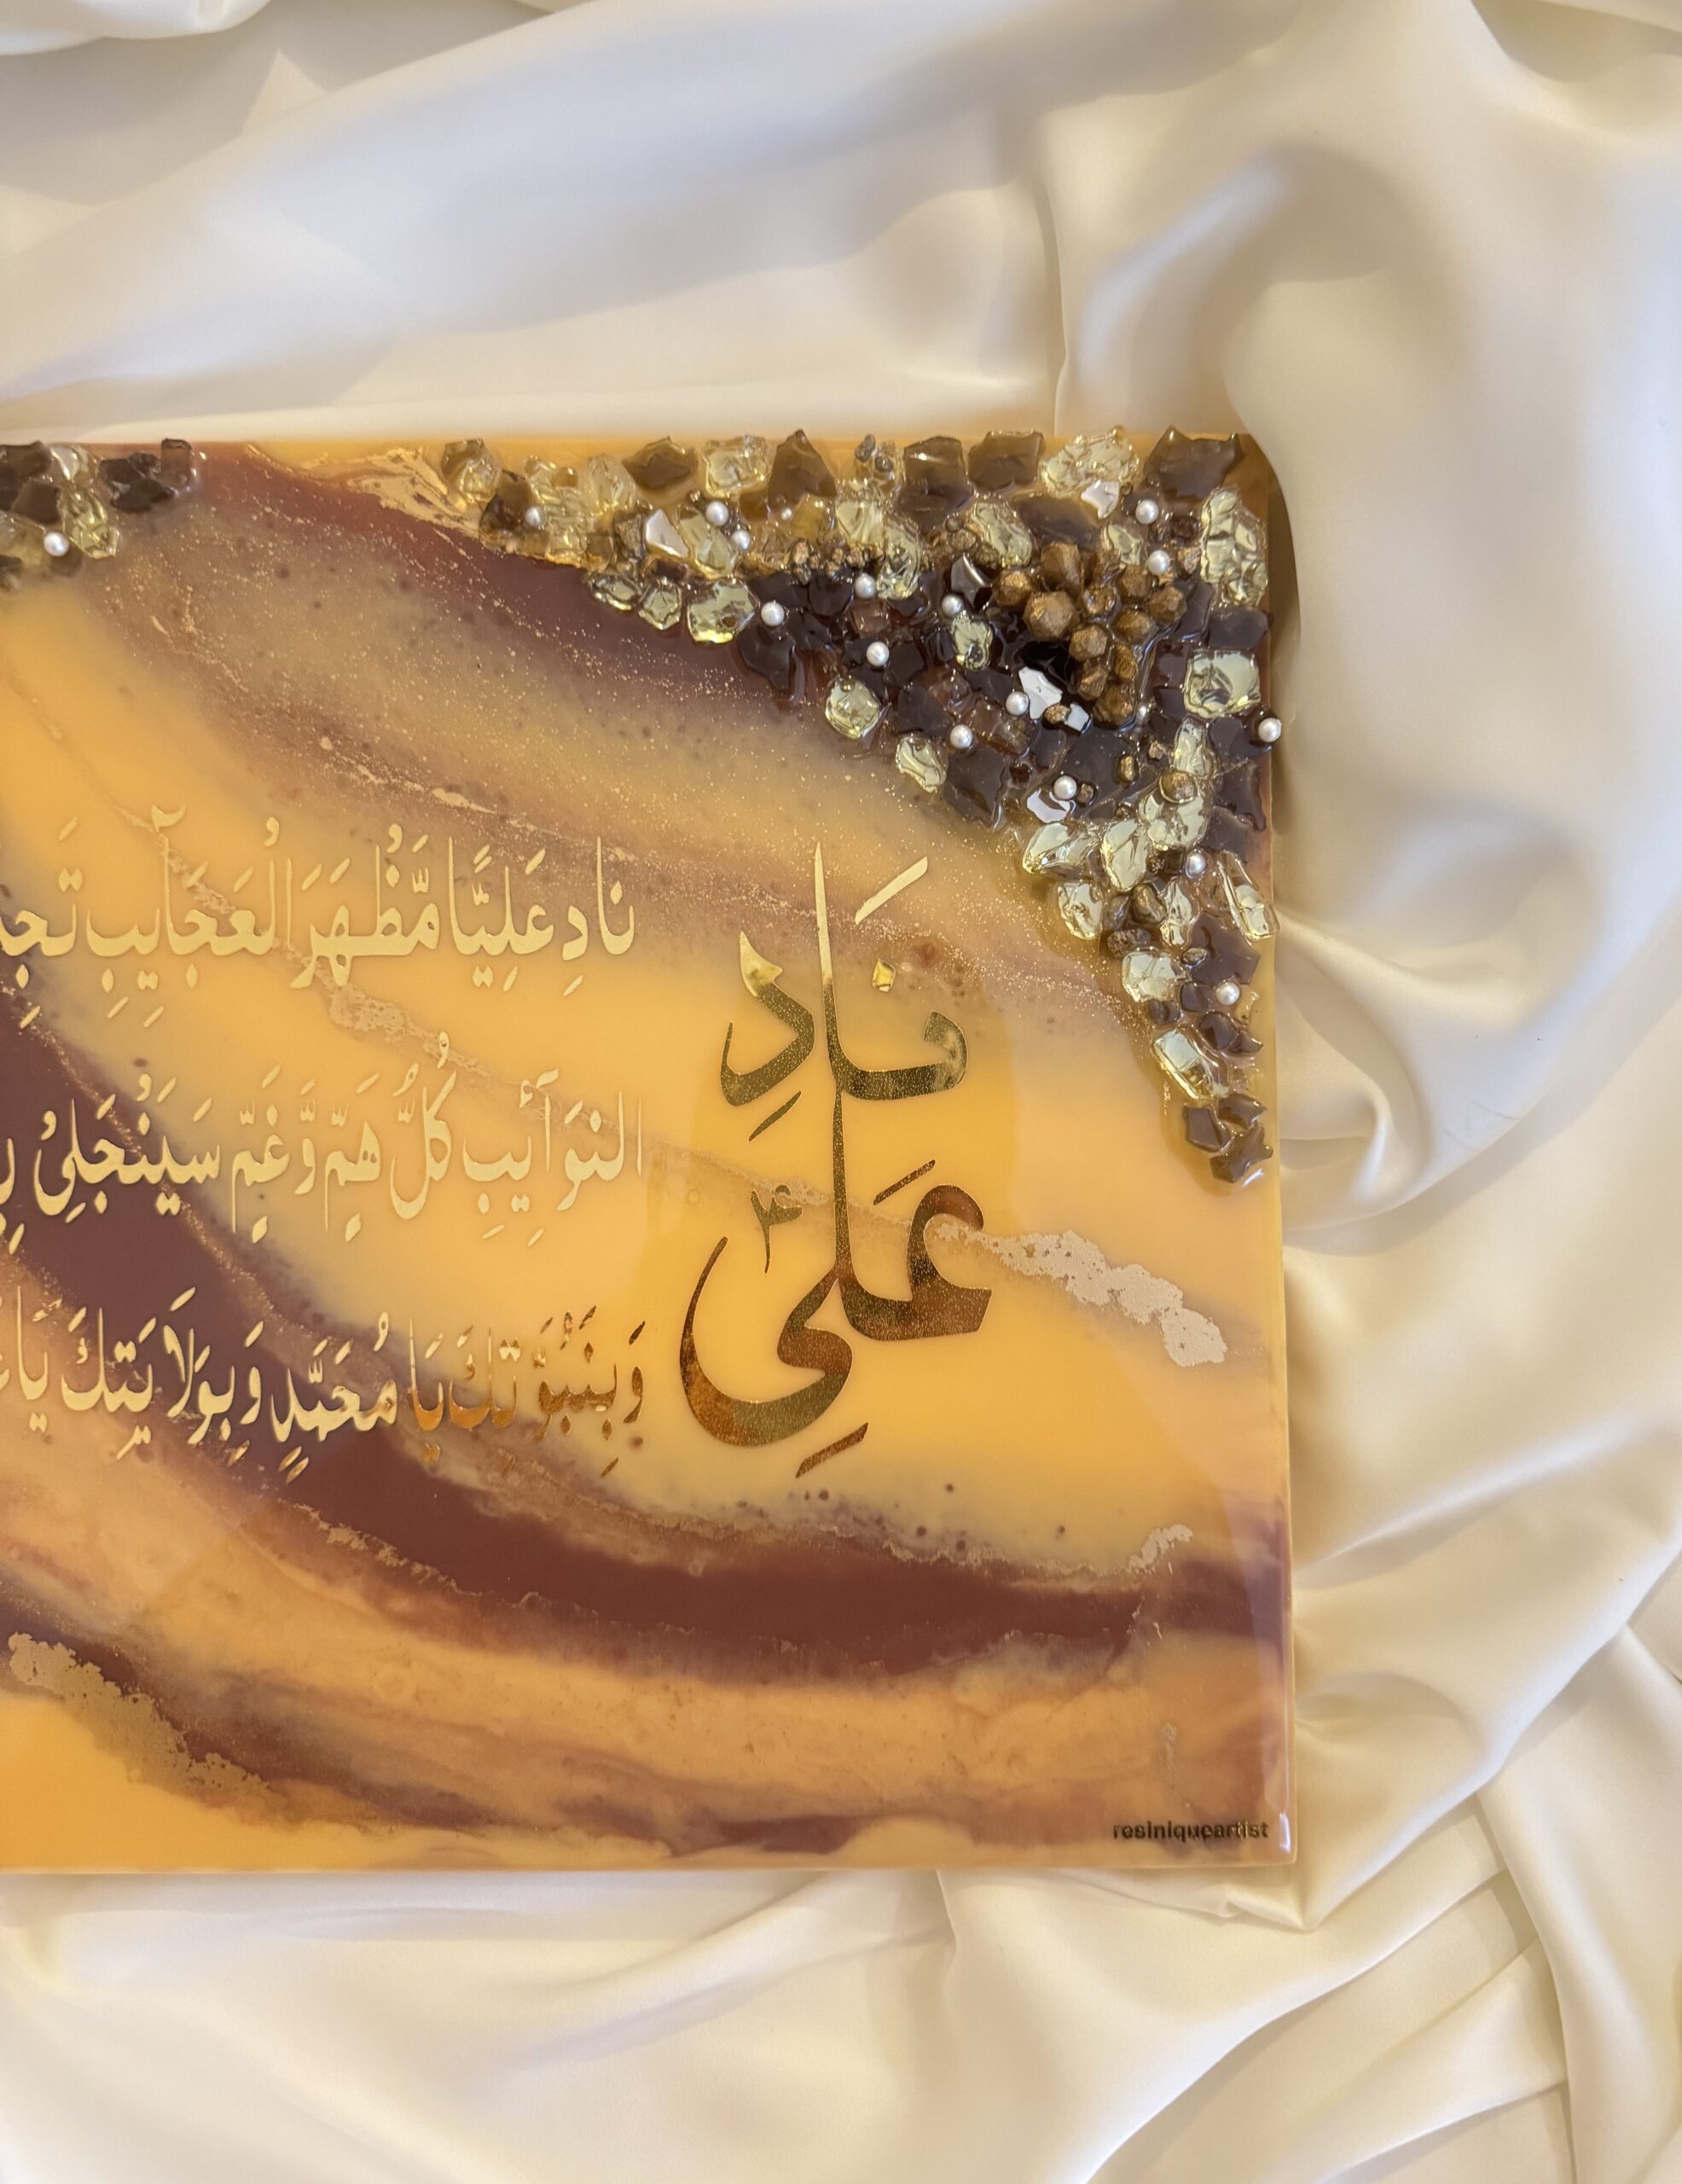 نَادِ
عَلِي ؑ
نادِ عَلِيًّا مَّظْهَرَ الْعَجَآيِبِ
النوَآئِبِ كُلُّ هَمٍّ وَّغَمٍّ سَيَنْجَلِيْ
وَبِنْبُوَّتِكَ يَا مُحَمَّدٍ وَبِوَلَايَتِكَ
resiniqueartist